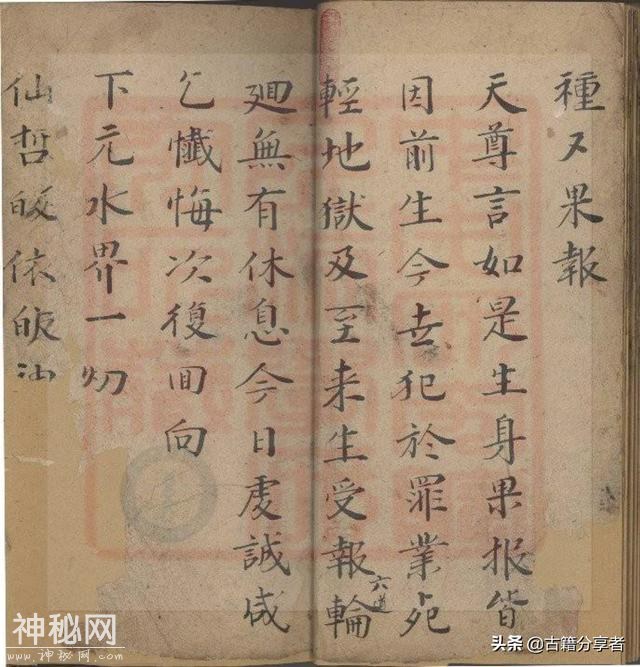 種又果報
天尊言如是生身果报皆
因前生今世犯於罪業死
輕地獄及至来生受報六道輪
廻無有休息今日虔誠咸
乞懺悔次復回向
下元水界一切
仙哲皈依皈
神秘网
www.神秘网.com
头条 @古籍分享者